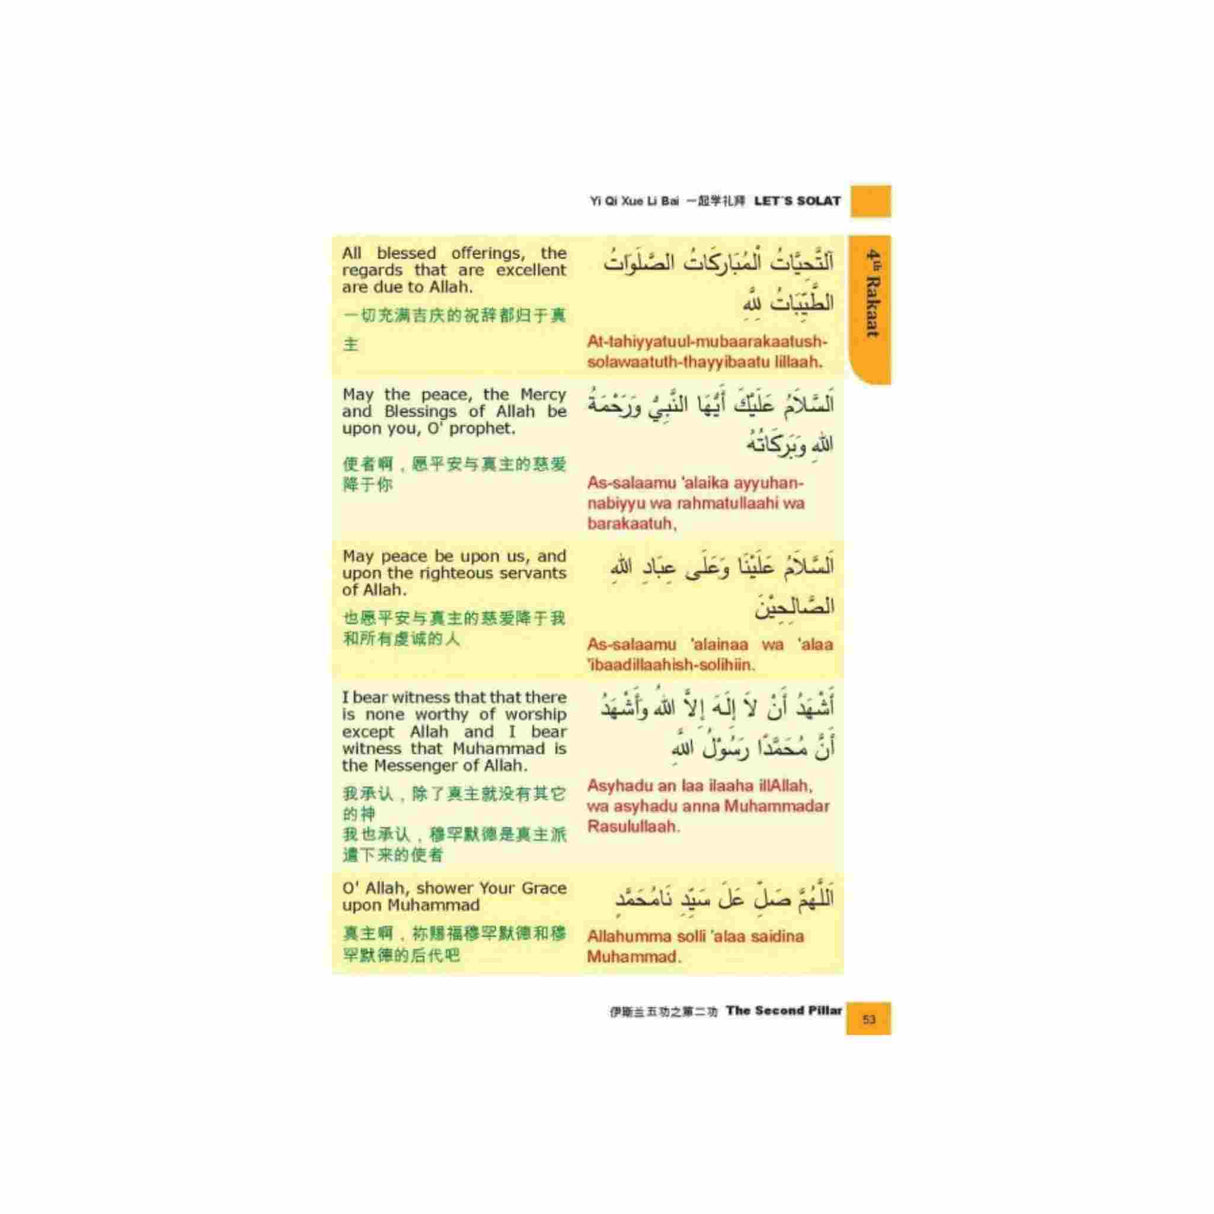 Yi Qi Xue Li Bai 一起学礼拜 LET'S SOLAT
4th Rakaat
All blessed offerings, the
regards that are excellent
are due to Allah.
一切充满吉庆的祝辞都归于真
主
اَلتَّحِيَّاتُ الْمُبَارَكَاتُ الصَّلَوَاتُ
الطَّيِّبَاتُ لِلَّهِ
At-tahiyyatuul-mubaarakaatush-
solawaatuth-thayyibaatu lillaah.
May the peace, the Mercy
and Blessings of Allah be
upon you, O' prophet.
使者啊，愿平安与真主的慈爱
降于你
اَلسَّلاَمُ عَلَيْكَ أَيُّهَا النَّبِيُّ وَرَحْمَةُ
اللهِ وَبَرَكَاتُهُ
As-salaamu 'alaika ayyuhan-
nabiyyu wa rahmatullaahi wa
barakaatuh,
May peace be upon us, and
upon the righteous servants
of Allah.
也愿平安与真主的慈爱降于我
和所有虔诚的人
اَلسَّلاَمُ عَلَيْنَا وَعَلَى عِبَادِ اللهِ
الصَّالِحِيْنَ
As-salaamu 'alainaa wa 'alaa
'ibaadillaahish-solihiin.
I bear witness that that there
is none worthy of worship
except Allah and I bear
witness that Muhammad is
the Messenger of Allah.
我承认，除了真主就没有其它
的神
我也承认，穆罕默德是真主派
遣下来的使者
أَشْهَدُ أَنْ لاَ إِلَهَ إِلاَّ اللهُ وَأَشْهَدُ
أَنَّ مُحَمَّدًا رَسُوْلُ اللَّهِ
Asyhadu an laa ilaaha illAllah,
wa asyhadu anna Muhammadar
Rasulullaah.
O' Allah, shower Your Grace
upon Muhammad
真主啊，祢赐福穆罕默德和穆
罕默德的后代吧
اَللَّهُمَّ صَلِّ عَلَ سَيِّدِ نَامُحَمَّدٍ
Allahumma solli 'alaa saidina
Muhammad.
伊斯兰五功之第二功 The Second Pillar
53